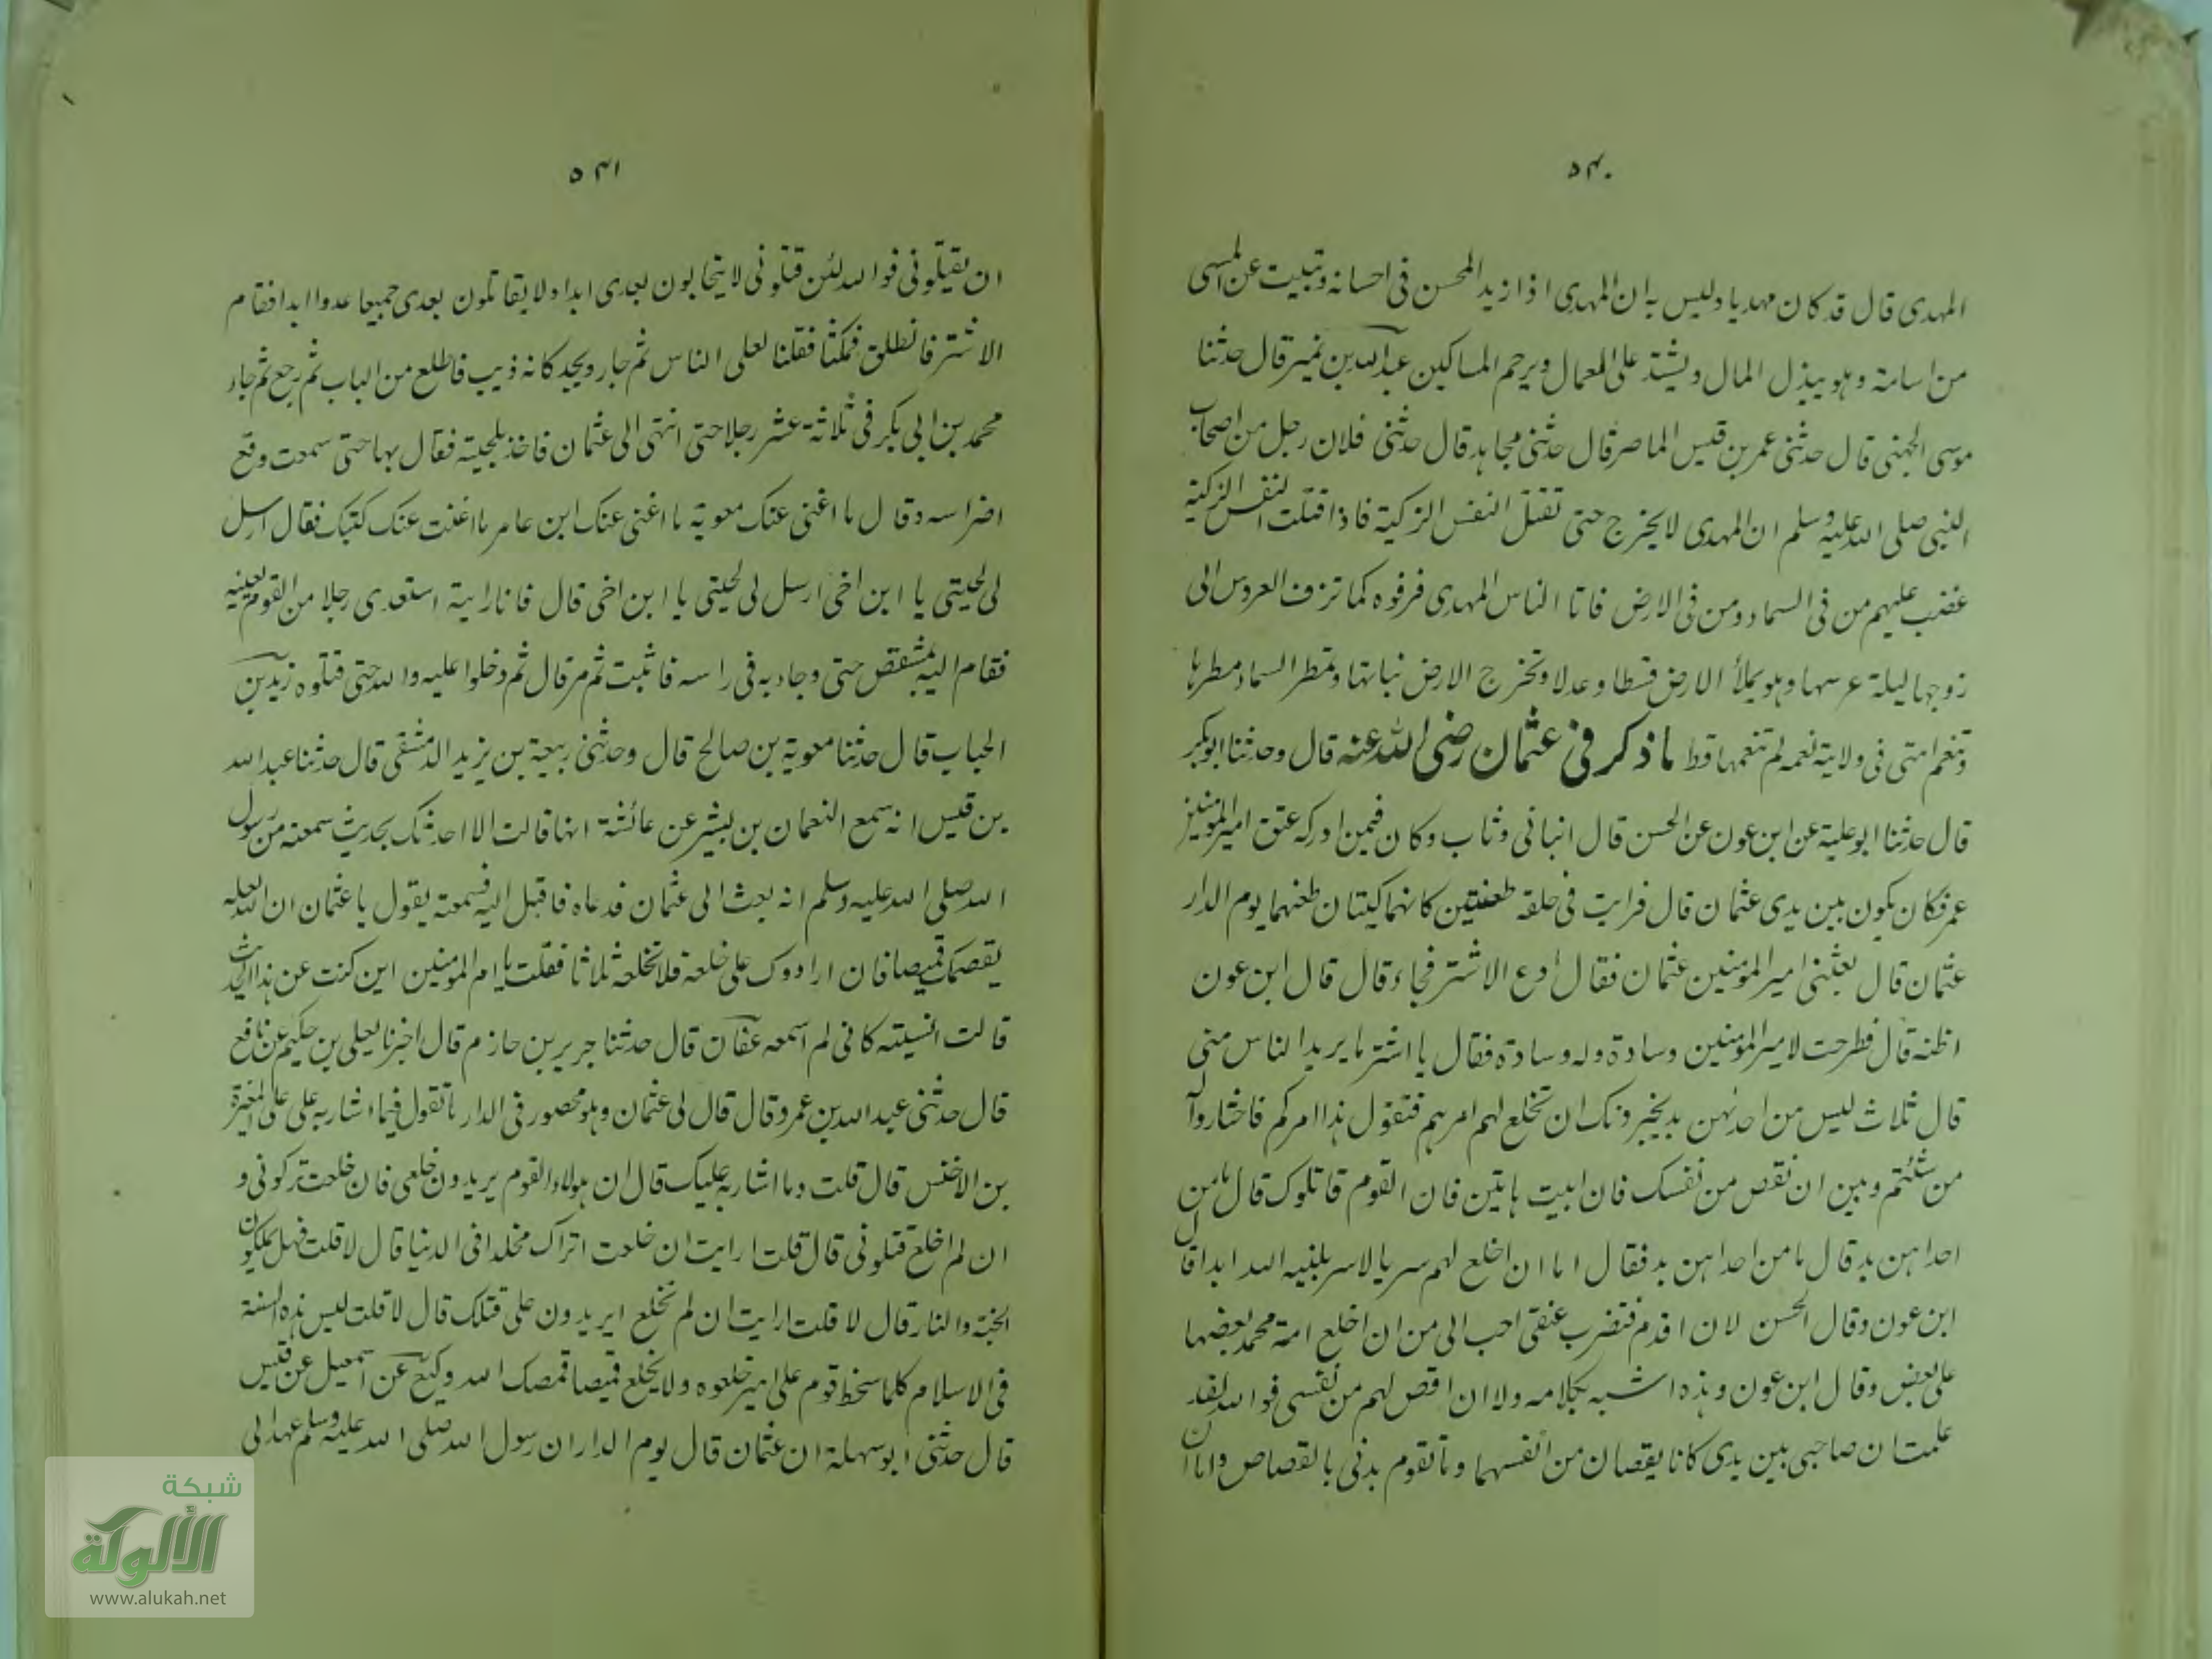 ٥٤٠
المهدى قال قد كان مهديا وليس به ان المهدى اذا زيد المحسن فى احسانه وتبيت عن المسى
من اسامة وهو يبذل المال ويشتد على العمال ويرحم المساكين عبد الله بن نمير قال حدثنا
موسى الجهنى قال حدثنى عمر بن قيس الماصر قال حدثنى مجاهد قال حدثنى فلان رجل من اصحاب
النبى صلى الله عليه وسلم ان المهدى لا يخرج حتى تقتل النفس الزكية فاذا قتلت النفس الزكية
غضب عليهم من فى السماء ومن فى الارض فاتا الناس المهدى فزفوه كما تزف العروس الى
زوجها ليلة عرسها وهو يملأ الارض قسطا وعدلا وتخرج الارض نباتها وتمطر السماء مطرها
وتنعم امتى فى ولايته نعمه لم تنعمها قط ما ذكر فى عثمان رضى الله عنه قال وحدثنا ابو بكر
قال حدثنا ابو علية عن ابن عون عن الحسن قال انبانى وثاب وكان فيمن ادركه عتق امير المومنين
عمر فكان يكون بين يدى عثمان قال فرايت فى حلقه طعنتين كانهما كيتان طعنهما يوم الدار
عثمان قال بعثنى امير المومنين عثمان فقال ادع الاشتر فجاء قال قال ابن عون
اظنه قال فطرحت لامير المومنين وسادة وله وسادة فقال يا اشتر ما يريد الناس منى
قال ثلاث ليس من احدٰهن بد يخيرونك ان تخلع لهم امرهم فتقول هذا امركم فاختاروا له
من شئتم وبين ان تقص من نفسك فان ابيت هاتين فان القوم قاتلوك قال ما من
احداهن بد قال ما من احداهن بد فقال اما ان اخلع لهم سربالا سربلنيه الله ابدا قال
ابن عون وقال الحسن لان اقدم فتضرب عنقى احب الى من ان اخلع امة محمد بعضها
على بعض وقال ابن عون وهذه اشبه بكلامه ولا ان اقص لهم من نفسى فوالله لقد
علمت ان صاحبى بين يدى كانا يقصان من انفسهما وما تقوم بدنى بالقصاص واما ان
٥٤١
ان يقتلونى فوالله لئن قتلونى لا يتحابون بعدى ابدا ولا يقاتلون بعدى جميعا عدوا ابدا فقام
الاشتر فانطلق فمكثنا فقلنا لعلى الناس ثم جاء رويجد كانه ذيب فاطلع من الباب ثم رجع ثم جاء
محمد بن ابى بكر فى ثلاثة عشر رجلا حتى انتهى الى عثمان فاخذ بلحيته فقال بها حتى سمعت وقع
اضراسه وقال ما اغنى عنك معوية ما اغنى عنك ابن عامر ما اغنت عنك كتبك فقال ارسل
لى لحيتى يا ابن اخى ارسل لى لحيتى يا ابن اخى قال فانا رايته استعدى رجلا من القوم بعينه
فقام اليه بمشقص حتى وجاء به فى راسه فاثبت ثم مر قال ثم دخلوا عليه والله حتى قتلوه زيد بن
الحباب قال حدثنا معوية بن صالح قال وحدثنى ربيعة بن يزيد الدمشقى قال حدثنا عبد الله
بن قيس انه سمع النعمان بن بشير عن عائشة انها قالت الا احدثك بحديث سمعته من رسول
الله صلى الله عليه وسلم انه بعث الى عثمان فدعاه فاقبل اليه فسمعته يقول يا عثمان ان الله لعله
يقمصك قميصا فان ارادوك على خلعه فلا تخلعه ثلاثا فقلت يا ام المومنين اين كنت عن هذا الحديث
قالت انسيته كانى لم اسمعه عفان قال حدثنا جرير بن حازم قال اخبرنا يعلى بن حكيم عن نافع
قال حدثنى عبد الله بن عمر وقال قال لى عثمان وهو محصور فى الدار ما تقول فيما اشار به على على المغيرة
بن الاخنس قال قلت وما اشار به عليك قال ان هولاء القوم يريدون خلعى فان خلعت تركونى و
ان لم اخلع قتلونى قال قلت ارايت ان خلعت اتراك مخلدا فى الدنيا قال لا قلت فهل يملكون
الجنة والنار قال لا قلت ارايت ان لم تخلع ايريدون على قتلك قال لا قلت ليس هذه السنة
فى الاسلام كلما سخط قوم على امير خلعوه ولا يخلع قميصا قمصك الله وكيع عن اسمعيل عن قيس
قال حدثنى ابو سهلة ان عثمان قال يوم الدار ان رسول الله صلى الله عليه وسلم عهد الى
شبكة
الألوكة
www.alukah.net